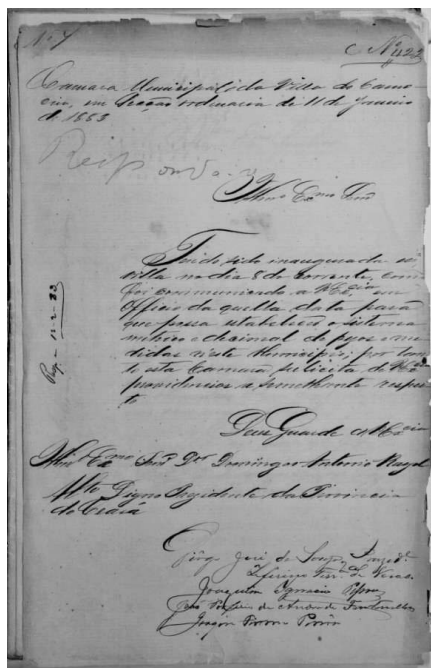 Nº 4
Nº 423
Camara Municipal da Villa do Camo-
cim, em Secção ordinaria de 11 de Janeiro
de 1883
Responda-se
Illmo Exmo Snr
Tendo sido inaugurada
villa no dia 8 do corrente, como
foi communicado a VExcia em
Officio da quella data para
que possa estabelecer o systema
metrico decimal de pezos e me-
didas neste Municipio, por tan-
to esta Camara solicita de VExcia
providencias a semelhante respei-
to
Deus Guarde a VExcia
Illmo Exmo Snr Dor Domingos Antonio Rayol
Mto Digno Presidente da Provincia
do Ceará
José de
Zeferino Ferra de Veras
Joaquim Ignacio Pessoa
de Andrade Fontenelle